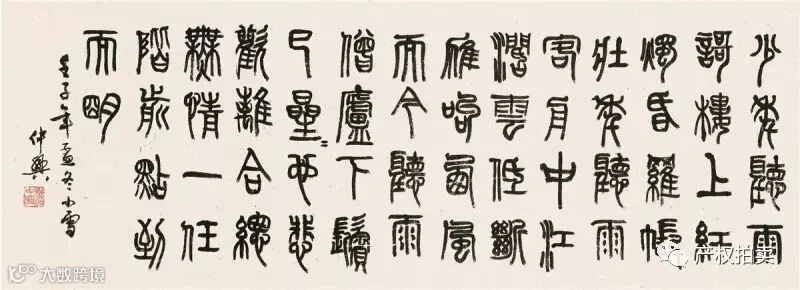 少年聽雨
謌樓上紅
燭昏羅帳
壯年聽雨
客舟中江
濶雲低斷
雁叫西風
而今聽雨
僧廬下鬢
已星〻也悲
歡離合總
無情一任
階前點到
天明
壬子年孟冬小雪
仲興
大数跨境
产权拍卖